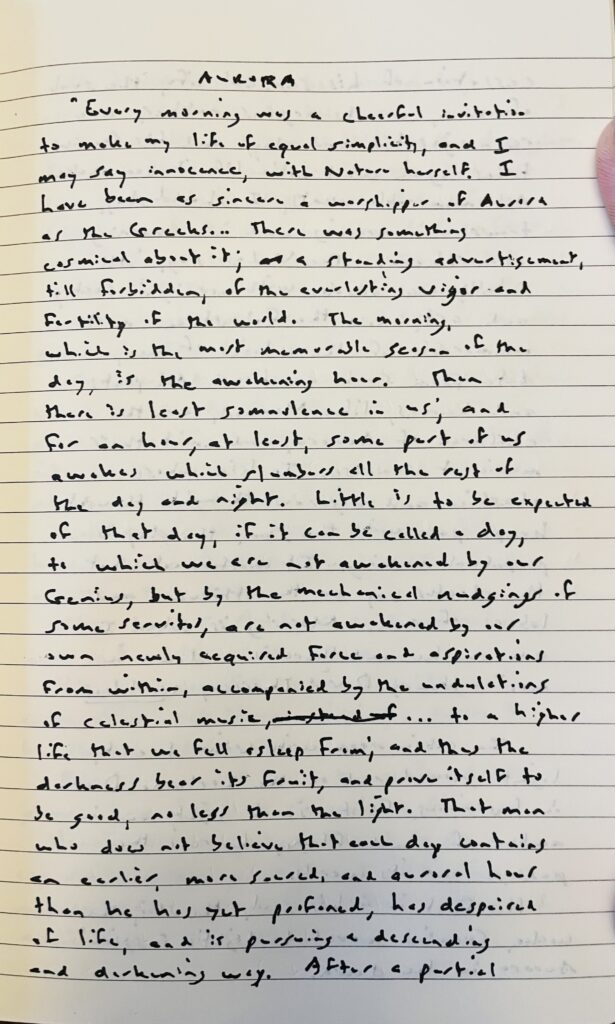 AURORA
"Every morning was a cheerful invitation
to make my life of equal simplicity, and I
may say innocence, with Nature herself. I
have been as sincere a worshipper of Aurora
as the Greeks... There was something
cosmical about it; a standing advertisement,
till forbidden, of the everlasting vigor and
fertility of the world. The morning,
which is the most memorable season of the
day, is the awakening hour. Then
there is least somnolence in us; and
for an hour, at least, some part of us
awakes which slumbers all the rest of
the day and night. Little is to be expected
of that day, if it can be called a day,
to which we are not awakened by our
Genius, but by the mechanical nudgings of
some servitor, are not awakened by our
own newly acquired force and aspirations
from within, accompanied by the undulations
of celestial music, instead of ... to a higher
life that we fell asleep from; and thus the
darkness bear its fruit, and prove itself to
be good, no less than the light. That man
who does not believe that each day contains
an earlier, more sacred, and auroral hour
than he has yet profaned, has despaired
of life, and is pursuing a descending
and darkening way. After a partial